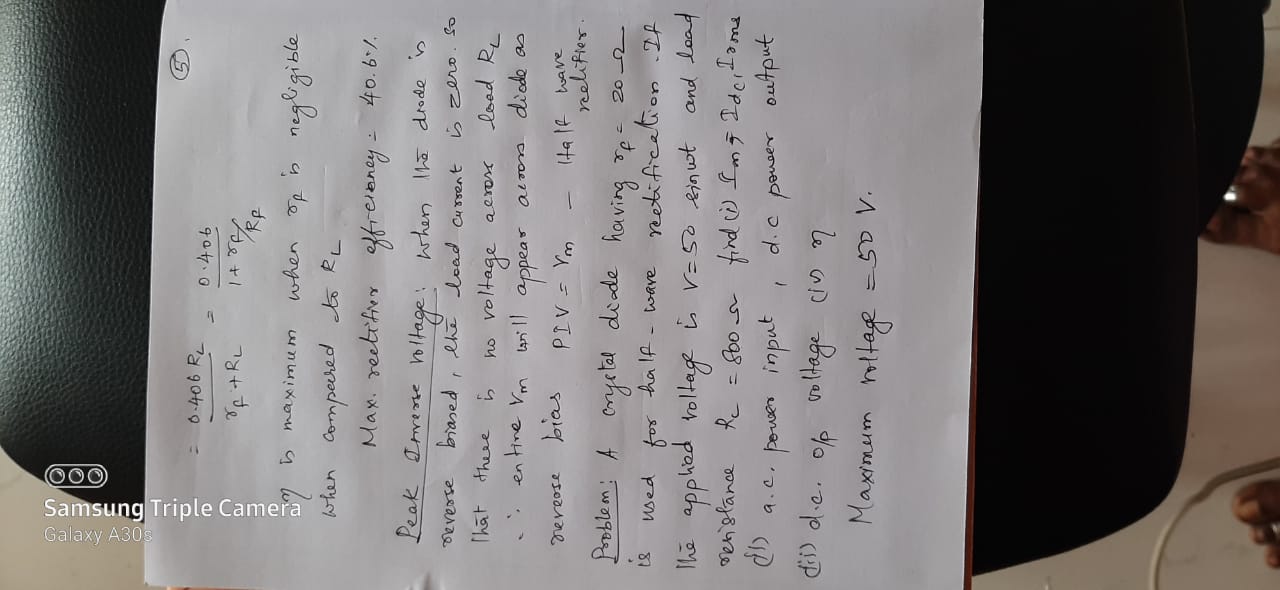 (5).
= 0.406 RL / rf + RL = 0.406 / 1 + rf/RF
η is maximum when rf is negligible
when compared to RL
Max. rectifier efficiency = 40.6%
Peak Inverse voltage: when the diode is
reverse biased, the load current is zero. so
that there is no voltage across load RL
∴ entire Vm will appear across diode as
reverse bias PIV = Vm - Half wave
rectifier.
Problem: A crystal diode having rf = 20 Ω
is used for half-wave rectification. If
the applied voltage is V = 50 sin ωt and load
resistance RL = 800 Ω find (i) Im, Idc, Irms
(ii) a.c. power input, d.c power output
(iii) d.c. o/p voltage (iv) η
Maximum voltage = 50 V.
Samsung Triple Camera
Galaxy A30s